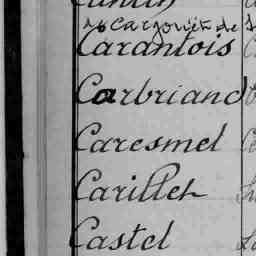 Cargouët de
Carantois
Carbriand
Caresmel
Carillet
Castel